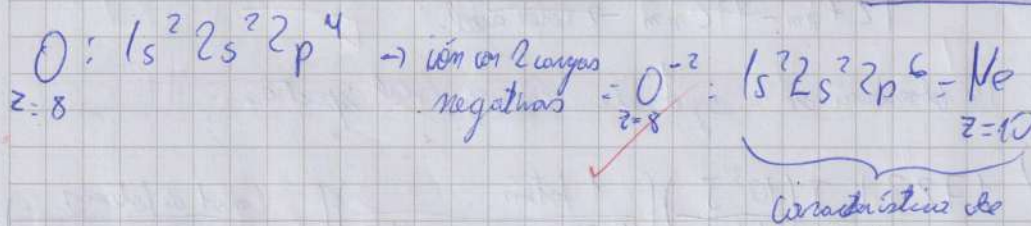 O: 1s² 2s² 2p⁴ → ión con 2 cargas
z=8 negativas = O⁻² : 1s² 2s² 2p⁶ = Ne
z=8 z=10
Característica de